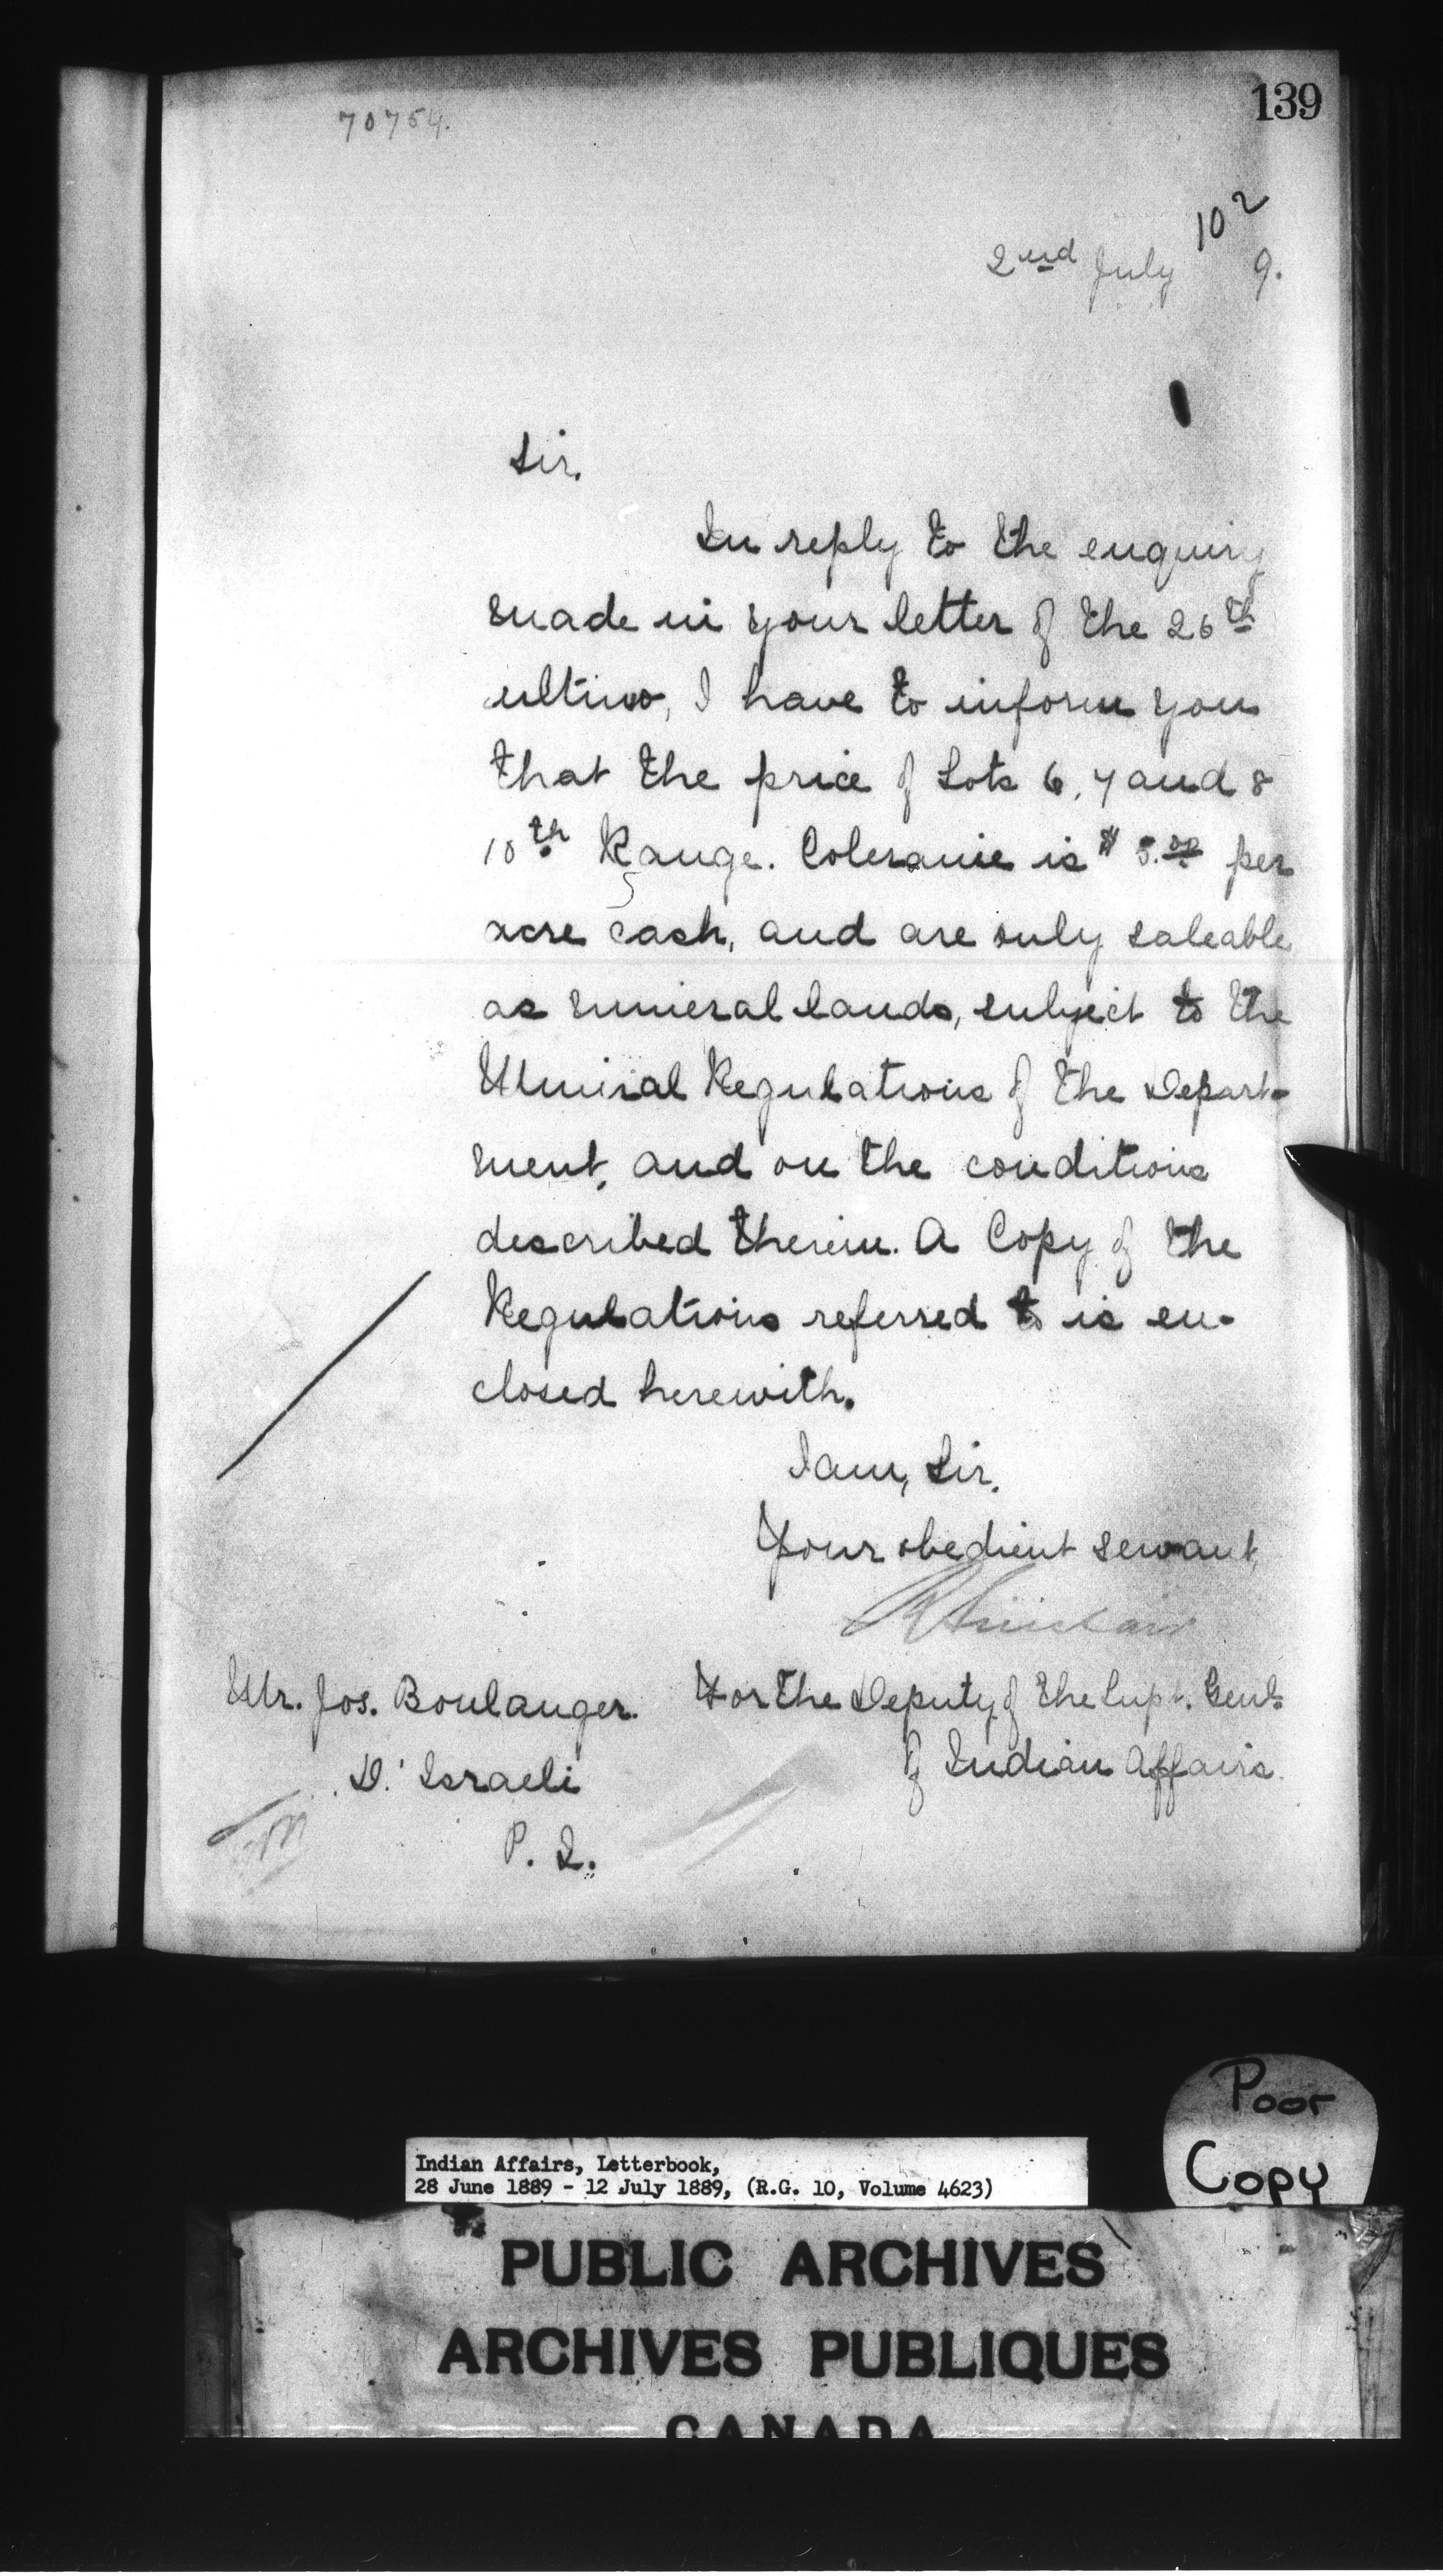 139
70754.
10 2
2nd July 9.
Sir,
In reply to the enquiry
made in your letter of the 26th
ultimo, I have to inform you
that the price of Lots 6, 7 and 8
10th Range. Coleraine is $5.00 per
acre cash, and are only saleable
as mineral lands, subject to the
Mineral Regulations of the Depart-
ment, and on the conditions
described therein. A Copy of the
Regulations referred to is en-
closed herewith.
I am, Sir,
Your obedient servant
R Sinclair
For the Deputy of the Supt. Genl.
of Indian Affairs.
Mr. Jos. Boulanger.
D'Israeli
P. Q.
Poor
Copy
Indian Affairs, Letterbook,
28 June 1889 - 12 July 1889, (R.G. 10, Volume 4623)
PUBLIC ARCHIVES
ARCHIVES PUBLIQUES
CANADA